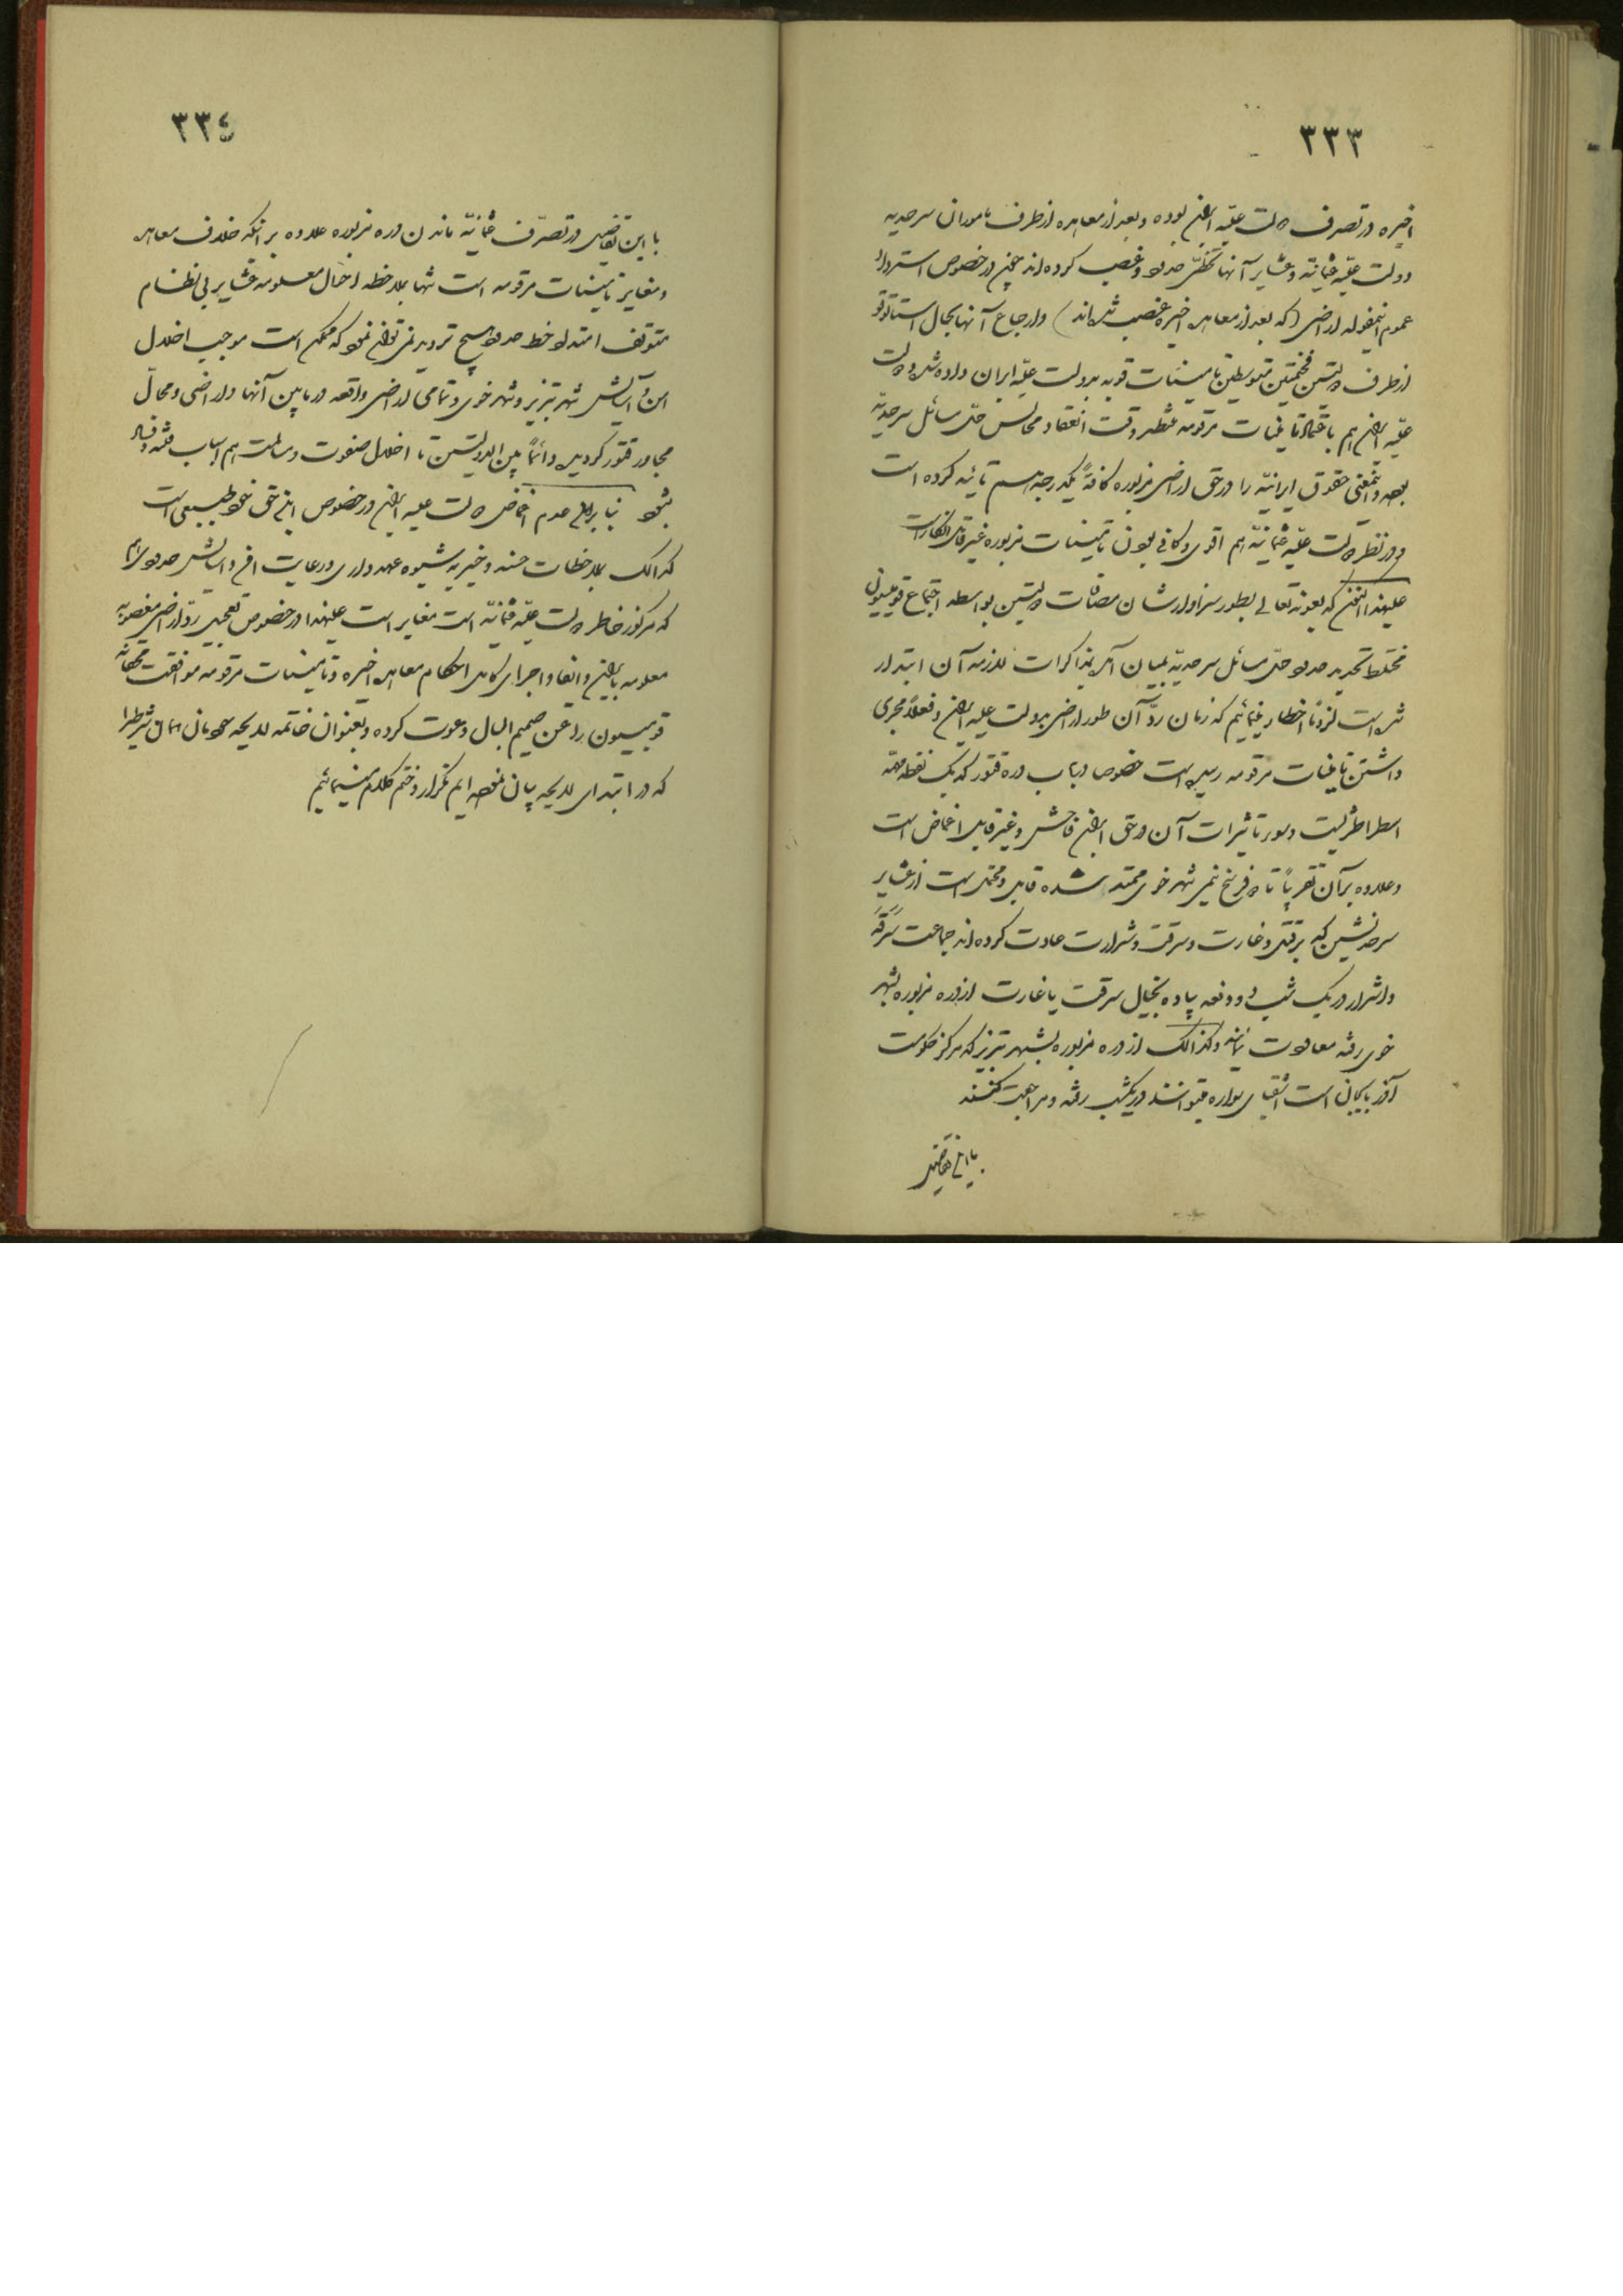 ۳۳۳
اخیره در تصرف دولت علیّه ایران بوده و بعد از معاهده از طرف مأموران سرحدیه
دولت علیّه عثمانیّه و عشایر آنها تخطّی حدود و غصب کرده‌اند چون در خصوص استرداد
عموم اینمقوله اراضی (که بعد از معاهده اخیره غصب شده‌اند) و ارجاع آنها بحال استاتوقو
از طرف دولتین فخیمتین متوسطین تأمینات قویه بدولت علیّه ایران داده شده و دولت
علیّه ایران هم باعتماد تأمینات مرقومه منتظر وقت انعقاد مجالس حلّ مسائل سرحدیّه
بوده و اینمعنی حقوق ایرانیّه را در حق اراضی مزبوره کافةً یکدرجه هم تأیید کرده است
و در نظر دولت علیّه عثمانیّه هم اقوی و کافی بودن تأمینات مزبوره غیر قابل انکار است
علیهذا الآن که بعونه تعالی بطور سزاوار شان مصافات دولتین بواسطه اجتماع قومیسیون
مختلط تحدید حدود حلّ مسائل سرحدیّه بمیان آمده بمذاکرات لازمه آن ابتدار
شده است لزوماً اخطار مینمائیم که زمان ردّ آن طور اراضی بدولت علیه ایران و فعلاً مجری
داشتن تأمینات مرقومه رسیده است خصوصا در باب دره قتور که یک نقطه مهمّه
اسطراطژیست و سوء تأثیرات آن در حق ایران فاحش و غیر قابل اغماض است
و علاوه بر آن تقریباً تا ۵ فرسخ نیمی شهر خوی ممتد شده قابل و محتمل است از عشایر
سرحدنشین که بر قتل و غارت و سرقت و شرارت عادت کرده‌اند جماعت سَرَقَه
و اشرار در یک شب دو دفعه پیاده بخیال سرقت یا غارت از دره مزبوره بشهر
خوی رفته معاودت نمایند و کذالک از دره مزبوره بشهر تبریز که مرکز حکومت
آذربایجان است اشقیای سواره میتوانند در یکشب رفته و مراجعت کنند
با این تفاصیل
۳۳٤
با این تفاصیل در تصرّف عثمانیّه ماندن دره مزبوره علاوه بر آنکه خلاف معاهده
و مغایر تأمینات مرقومه است تنها بملاحظه احوال معلومه عشایر بی نظام
متوقف امتداد خط حدود هیچ تردید نمیتوان نمود که ممکن است موجب اخلال
امن و آسایش شهر تبریز و شهر خوی و تمامی اراضی واقعه در مابین آنها و اراضی و محالّ
مجاور قتور گردیده دائماً بین الدولتین با اخلال صفوت و مسالمت هم اسباب فتنه و فساد
بشود بنا براین عدم اغماض دولت علیه ایران در خصوص این حق خود طبیعی است
کذالک بملاحظات حسنه و خیریه شیوه عهد داری و رعایت امن و آسایش حدود هم
که مرکوز خاطر دولت علیّه عثمانیّه است مغایر است علیهذا در خصوص تعجیل ردّ اراضی مغصوبه
معلومه بایران و ایفا و اجرای کامل احکام معاهده اخیره و تأمینات مرقومه موافقت محقّانه
قومیسیون را عن صمیم البال دعوت کرده و بعنوان خاتمه لایحه جوابمان همان شرط را
که در ابتدای لایحه بیان نموده‌ایم تکرار و ختم کلام مینمائیم